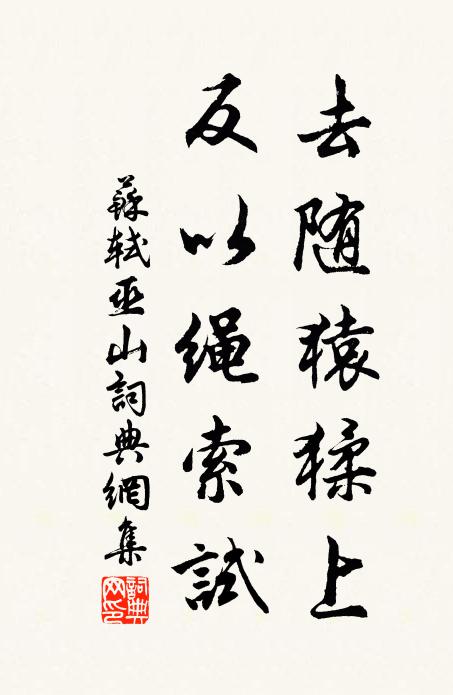 去随猿猱上
反以绳索試
蘇軾巫山詞典網集
詞典网印